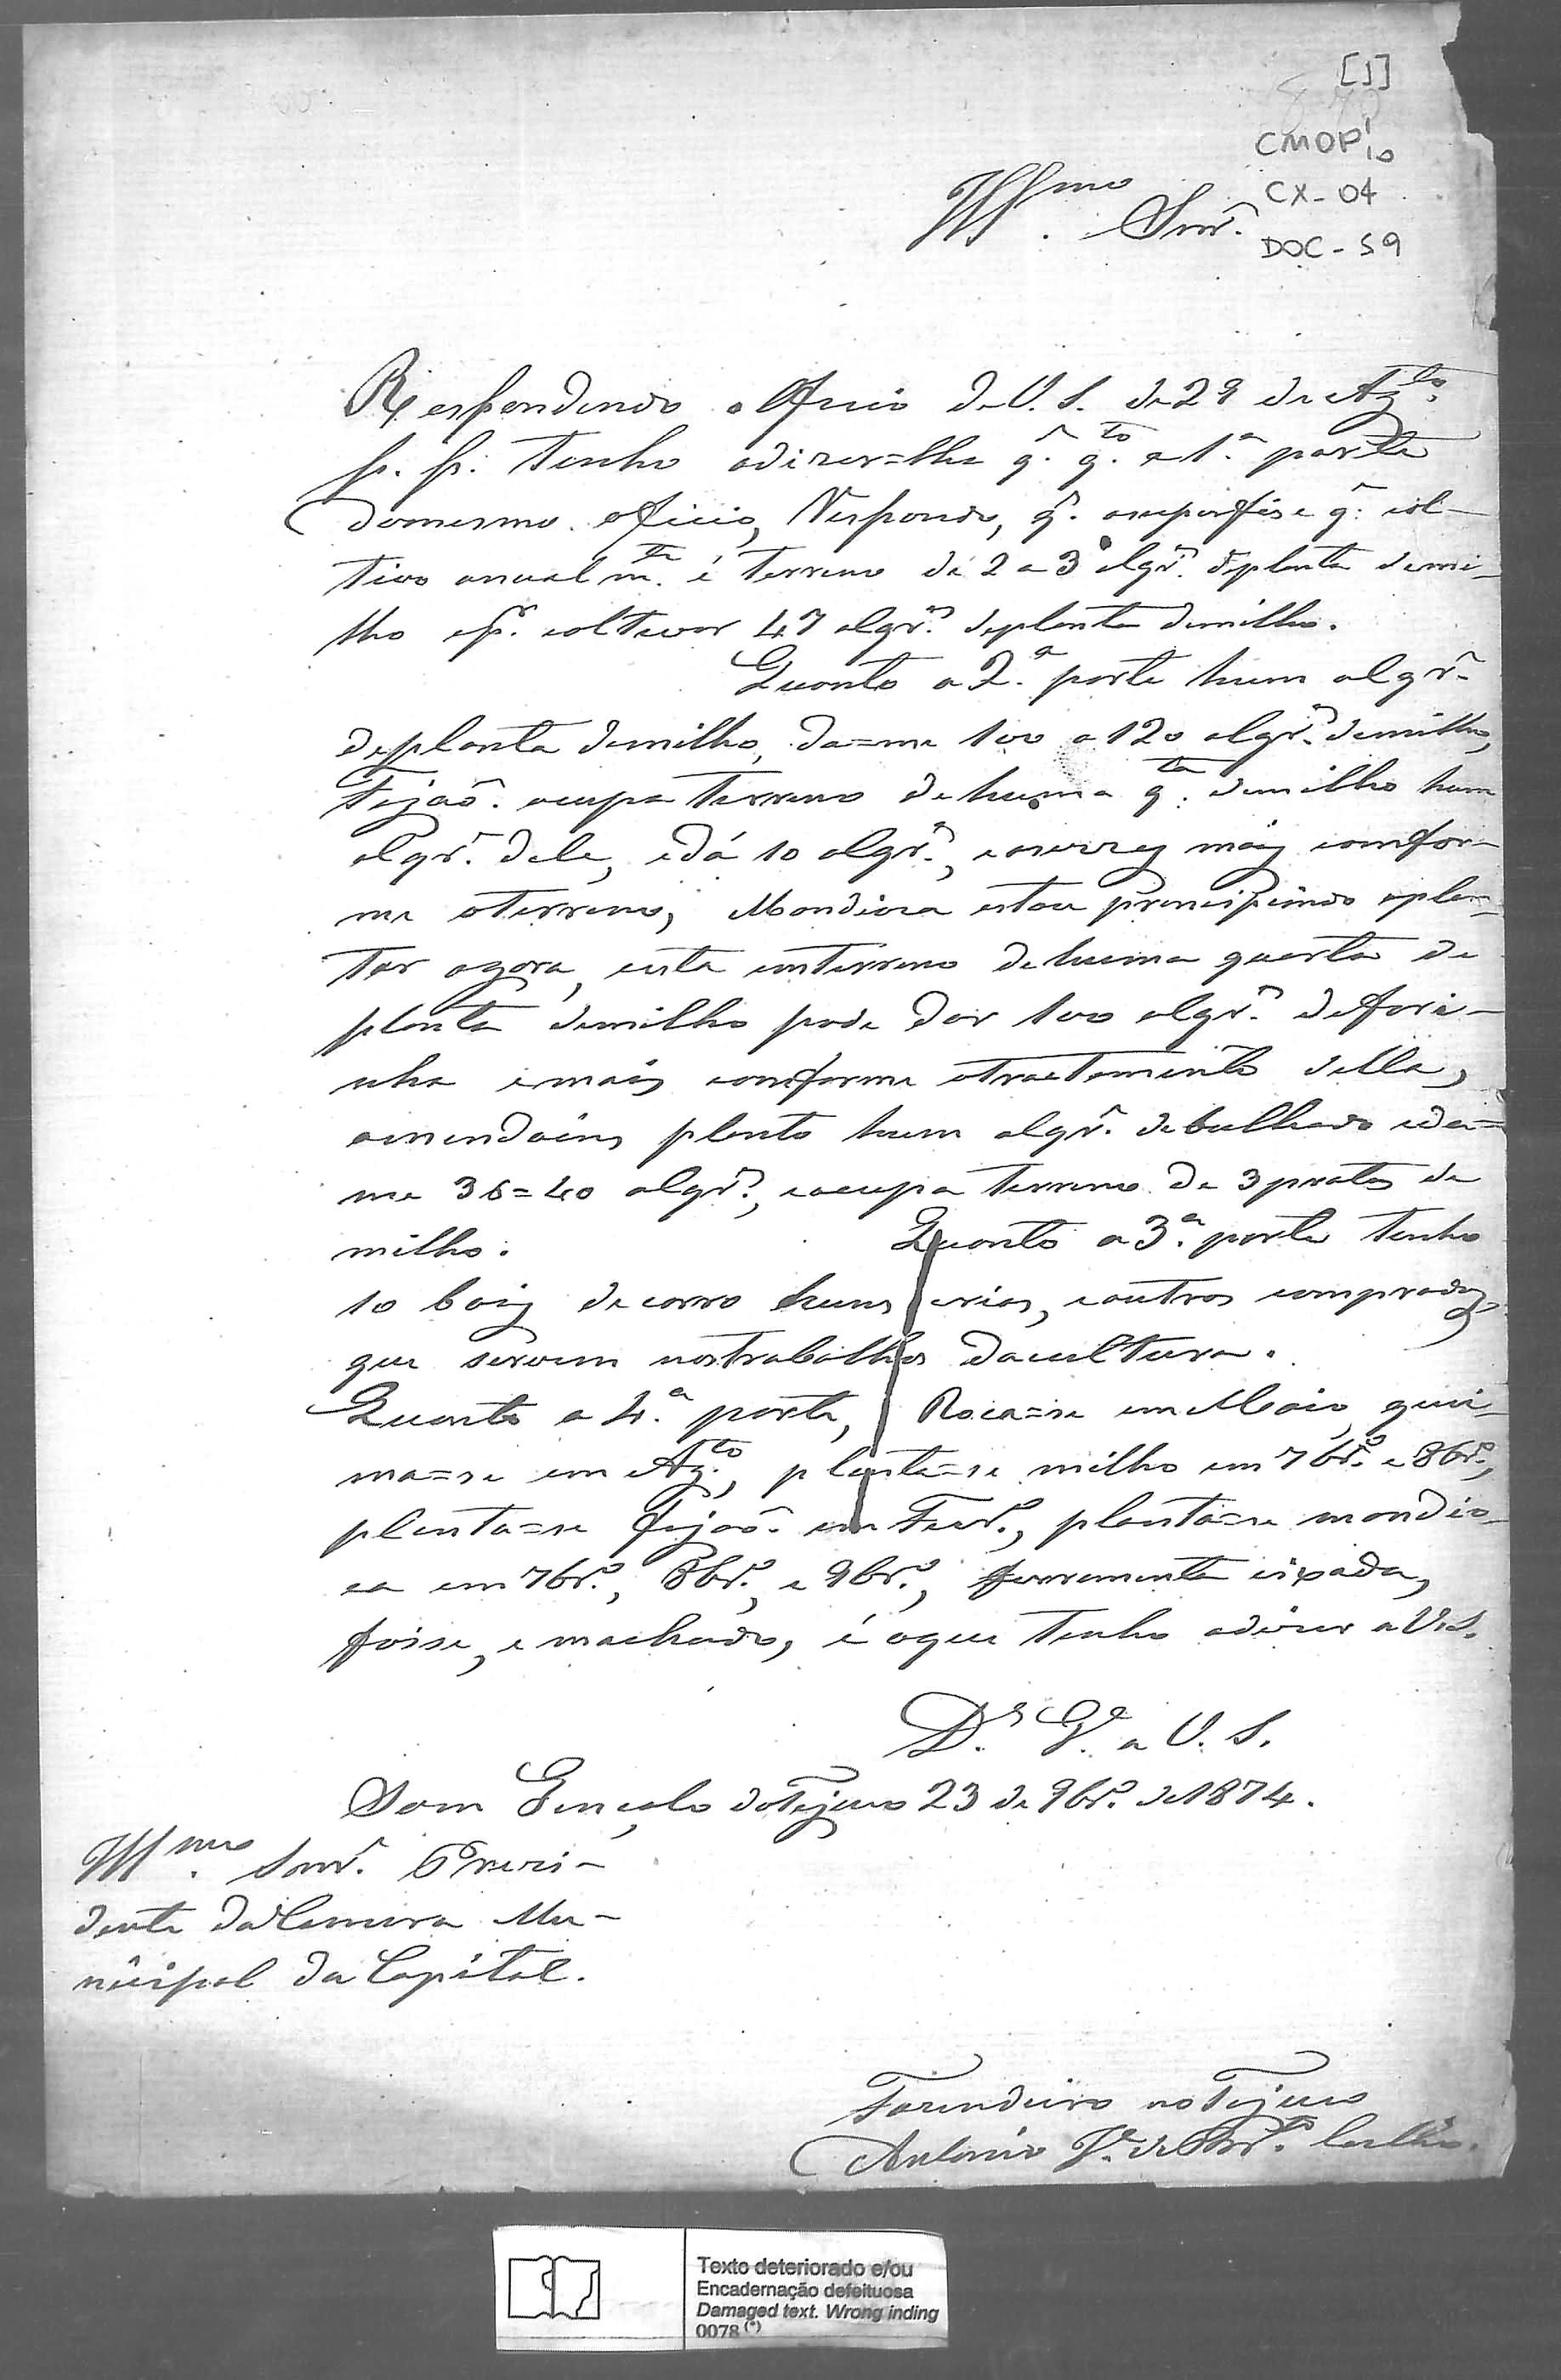 [1]
CMOP 1/10
CX-04
DOC-59
Illmo. Snr.
Respondendo o Oficio de V. S. de 29 de Agto.
p. p. tenho adizer=lhe q. qto. a 1ª parte
domesmo oficio, Respondo, q. q. col-
tivo anualmte. é terreno de 2 a 3 alqr. deplanta demi-
lho epr. coltivar 47 alqr.s deplanta demilho.
Quanto a 2ª parte hum alqr.
deplanta demilho, da=me 100 a 120 alqr.s demilho,
Fejaõ. ocupa terreno dehuma qta. demilho hum
alqr. dele, edá 10 alqr.s, máis comfor-
me oterreno, Mandioca estou prencipiando aplan-
tar agora, esta emterreno dehuma quarta de
planta demilho pode dar 100 alqr.s defari-
nha emais comforme otractamento della,
amendoins planto hum alqr. debulhado eda=
me 36=40 alqr.s, eocupa terreno de 3 pratos de
milho. Quanto a 3ª parte tenho
10 bois decarro huns crias, eoutros comprados,
que servem nostrabalhos dacultura.
Quanto a 4ª parte, Roca=se em Maio, quei-
ma=se em Agto., planta=se milho em 7br.o e 8br.o,
planta=se fejaõ. em Fevr.o, planta=se mandio-
ca em 7br.o, 8br.o, e 9br.o, ferramenta eixada,
foise, e machado, é oque tenho adizer a V.S.
D.s G.e a V. S.
Sam Gonçalo doTejuco 23 de 9br.o de 1874.
Illmo. Snr. Prezi-
dente daCamara Mu-
nicipal da Capital.
Fazendeiro noTejuco
Antonio Coelho.
Texto deteriorado e/ou
Encadernação defeituosa
Damaged text. Wrong inding
0078 (*)